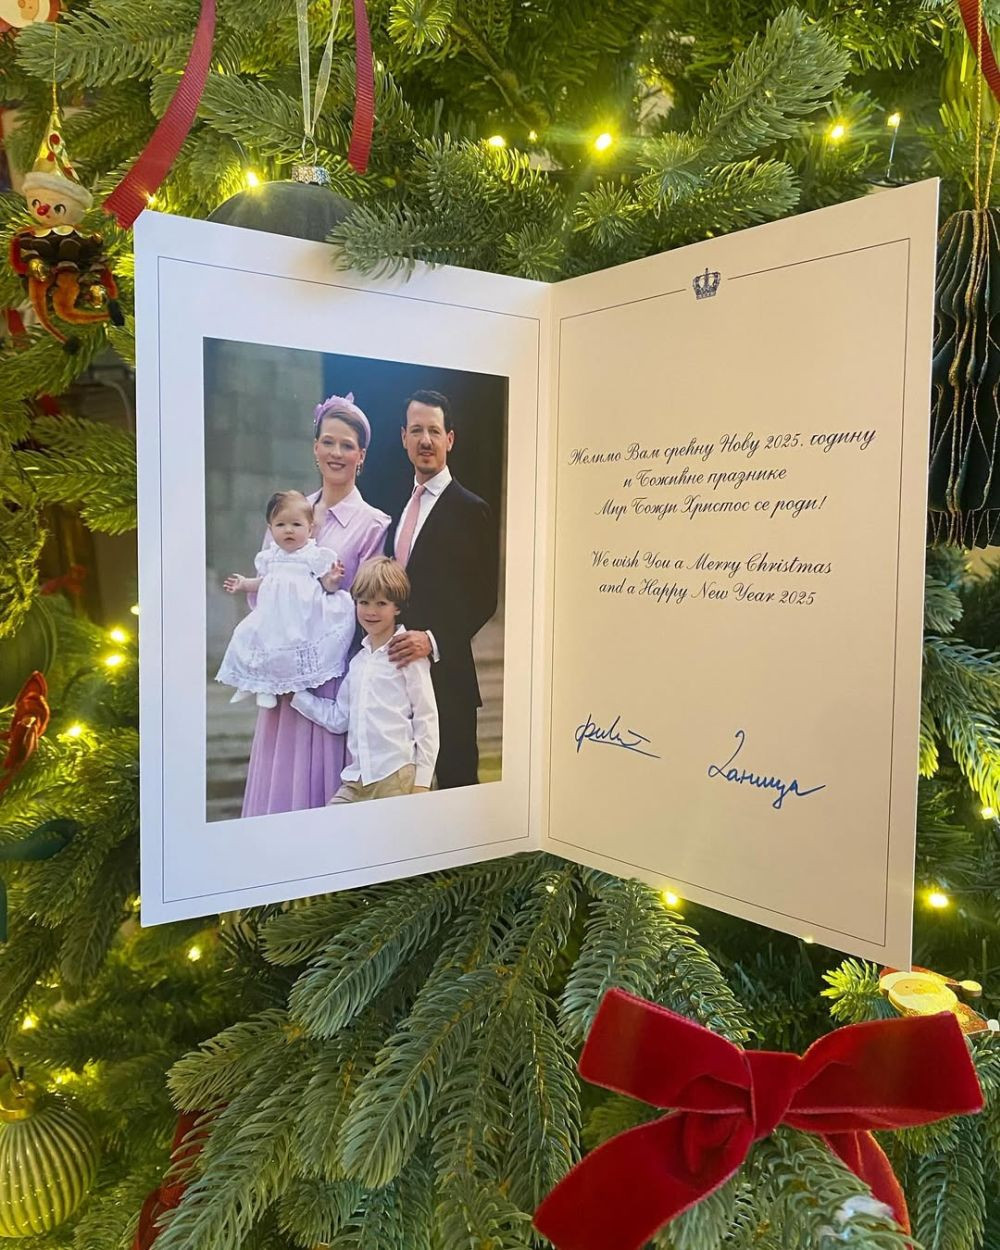 Желимо Вам срећну Нову 2025. годину
и Божићне празнике
Мир Божји Христос се роди!
We wish You a Merry Christmas
and a Happy New Year 2025
Филип
Даница